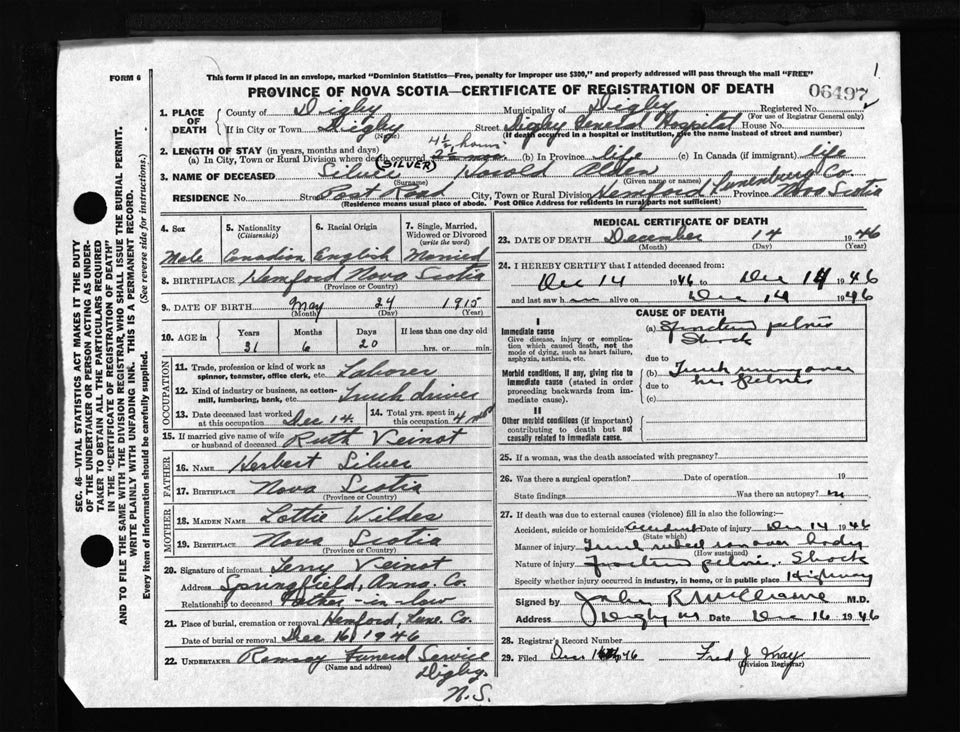 FORM 6
This form if placed in an envelope, marked "Dominion Statistics—Free, penalty for improper use $300," and properly addressed will pass through the mail "FREE"
1
PROVINCE OF NOVA SCOTIA—CERTIFICATE OF REGISTRATION OF DEATH
06497
1. PLACE OF DEATH
County of Digby Municipality of Digby Registered No.
(For use of Registrar General only)
If in City or Town Digby Street Digby General Hospital House No.
(Name) (If death occurred in a hospital or institution, give the name instead of street and number)
2. LENGTH OF STAY (in years, months and days) 4½ hours
(a) In City, Town or Rural Division where death occurred (b) In Province life (c) In Canada (if immigrant) life
(SILVER)
3. NAME OF DECEASED Silver Harold Allen
(Surname) (Given name or names)
RESIDENCE No. Street Post Road City, Town or Rural Division Hemford Lunenburg Co. Province Nova Scotia
(Residence means usual place of abode. Post Office Address for residents in rural parts not sufficient)
4. Sex
5. Nationality (Citizenship)
6. Racial Origin
7. Single, Married, Widowed or Divorced (write the word)
Male Canadian English Married
8. BIRTHPLACE Hemford Nova Scotia
(Province or Country)
9. DATE OF BIRTH May 24 1915
(Month) (Day) (Year)
10. AGE in Years Months Days If less than one day old
31 6 20 hrs. or min.
OCCUPATION
11. Trade, profession or kind of work as spinner, teamster, office clerk, etc. Laborer
12. Kind of industry or business, as cotton-mill, lumbering, bank, etc. Truck driver
13. Date deceased last worked at this occupation Dec 14
14. Total yrs. spent in this occupation 4
15. If married give name of wife or husband of deceased Ruth Veinot
FATHER
16. NAME Herbert Silver
17. BIRTHPLACE Nova Scotia
(Province or Country)
MOTHER
18. MAIDEN NAME Lottie Wildes
19. BIRTHPLACE Nova Scotia
(Province or Country)
20. Signature of informant Terry Veinot
Address Springfield, Anna. Co.
Relationship to deceased Father-in-law
21. Place of burial, cremation or removal Hemford, Lune. Co.
Date of burial or removal Dec 16 1946
22. UNDERTAKER Ramsay Funeral Service
(Name and address)
Digby
N.S.
MEDICAL CERTIFICATE OF DEATH
23. DATE OF DEATH December 14 1946
(Month) (Day) (Year)
24. I HEREBY CERTIFY that I attended deceased from:
Dec 14 1946 to Dec 14 1946
and last saw h im alive on Dec 14 1946
CAUSE OF DEATH
I
Immediate cause
Give disease, injury or complication which caused death, not the mode of dying, such as heart failure, asphyxia, asthenia, etc.
(a) Fracture pelvis
Shock
due to
Morbid conditions, if any, giving rise to immediate cause (stated in order proceeding backwards from immediate cause).
(b) Truck running over
due to his pelvis
(c)
II
Other morbid conditions (if important) contributing to death but not causally related to immediate cause.
25. If a woman, was the death associated with pregnancy?
26. Was there a surgical operation? Date of operation 19
State findings Was there an autopsy? no
27. If death was due to external causes (violence) fill in also the following:
Accident, suicide or homicide accident Date of injury Dec 14 1946
(State which)
Manner of injury Truck wheel ran over body
(How sustained)
Nature of injury Fracture pelvis. Shock
Specify whether injury occurred in industry, in home, or in public place Highway
Signed by John R McCleave M.D.
Address Digby NS Date Dec 16 1946
28. Registrar's Record Number
29. Filed Dec 16 46 Fred J May
Division Registrar)
SEC. 46—VITAL STATISTICS ACT MAKES IT THE DUTY
OF THE UNDERTAKER OR PERSON ACTING AS UNDER-
TAKER TO OBTAIN ALL THE PARTICULARS REQUIRED
IN THE "CERTIFICATE OF REGISTRATION OF DEATH"
AND TO FILE THE SAME WITH THE DIVISION REGISTRAR, WHO SHALL ISSUE THE BURIAL PERMIT.
WRITE PLAINLY WITH UNFADING INK. THIS IS A PERMANENT RECORD.
Every item of information should be carefully supplied. (See reverse side for instructions.)